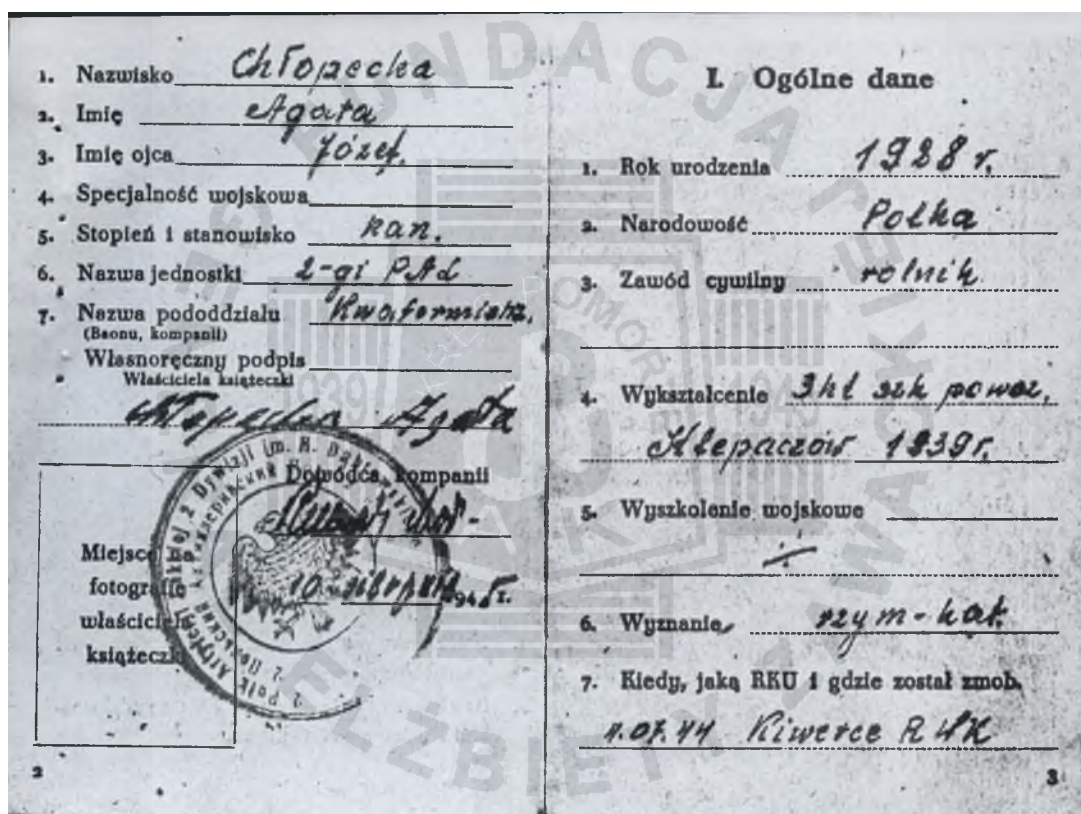 1. Nazwisko Chłopecka
2. Imię Agata
3. Imię ojca Józef.
4. Specjalność wojskowa
5. Stopień i stanowisko kan.
6. Nazwa jednostki 2-gi PAL
7. Nazwa pododdziału Kwatermistrz.
(Baonu, kompanii)
Własnoręczny podpis
Właściciela książeczki
Chłopecka Agata
Dowódca kompanii
10 sierpnia 1945 r.
Miejsce na
fotografię
właściciela
książeczki
2
I. Ogólne dane
1. Rok urodzenia 1928 r.
2. Narodowość Polka
3. Zawód cywilny rolnik
4. Wykształcenie 3 kl szk powsz,
Klepaczów 1939r.
5. Wyszkolenie wojskowe
6. Wyznanie rzym-kat.
7. Kiedy, jaką RKU i gdzie został zmob.
07.44 Kiwerce RWK
3
FUNDACJA
ELŻBIETY ZAWACKIEJ
1939 1945
AK